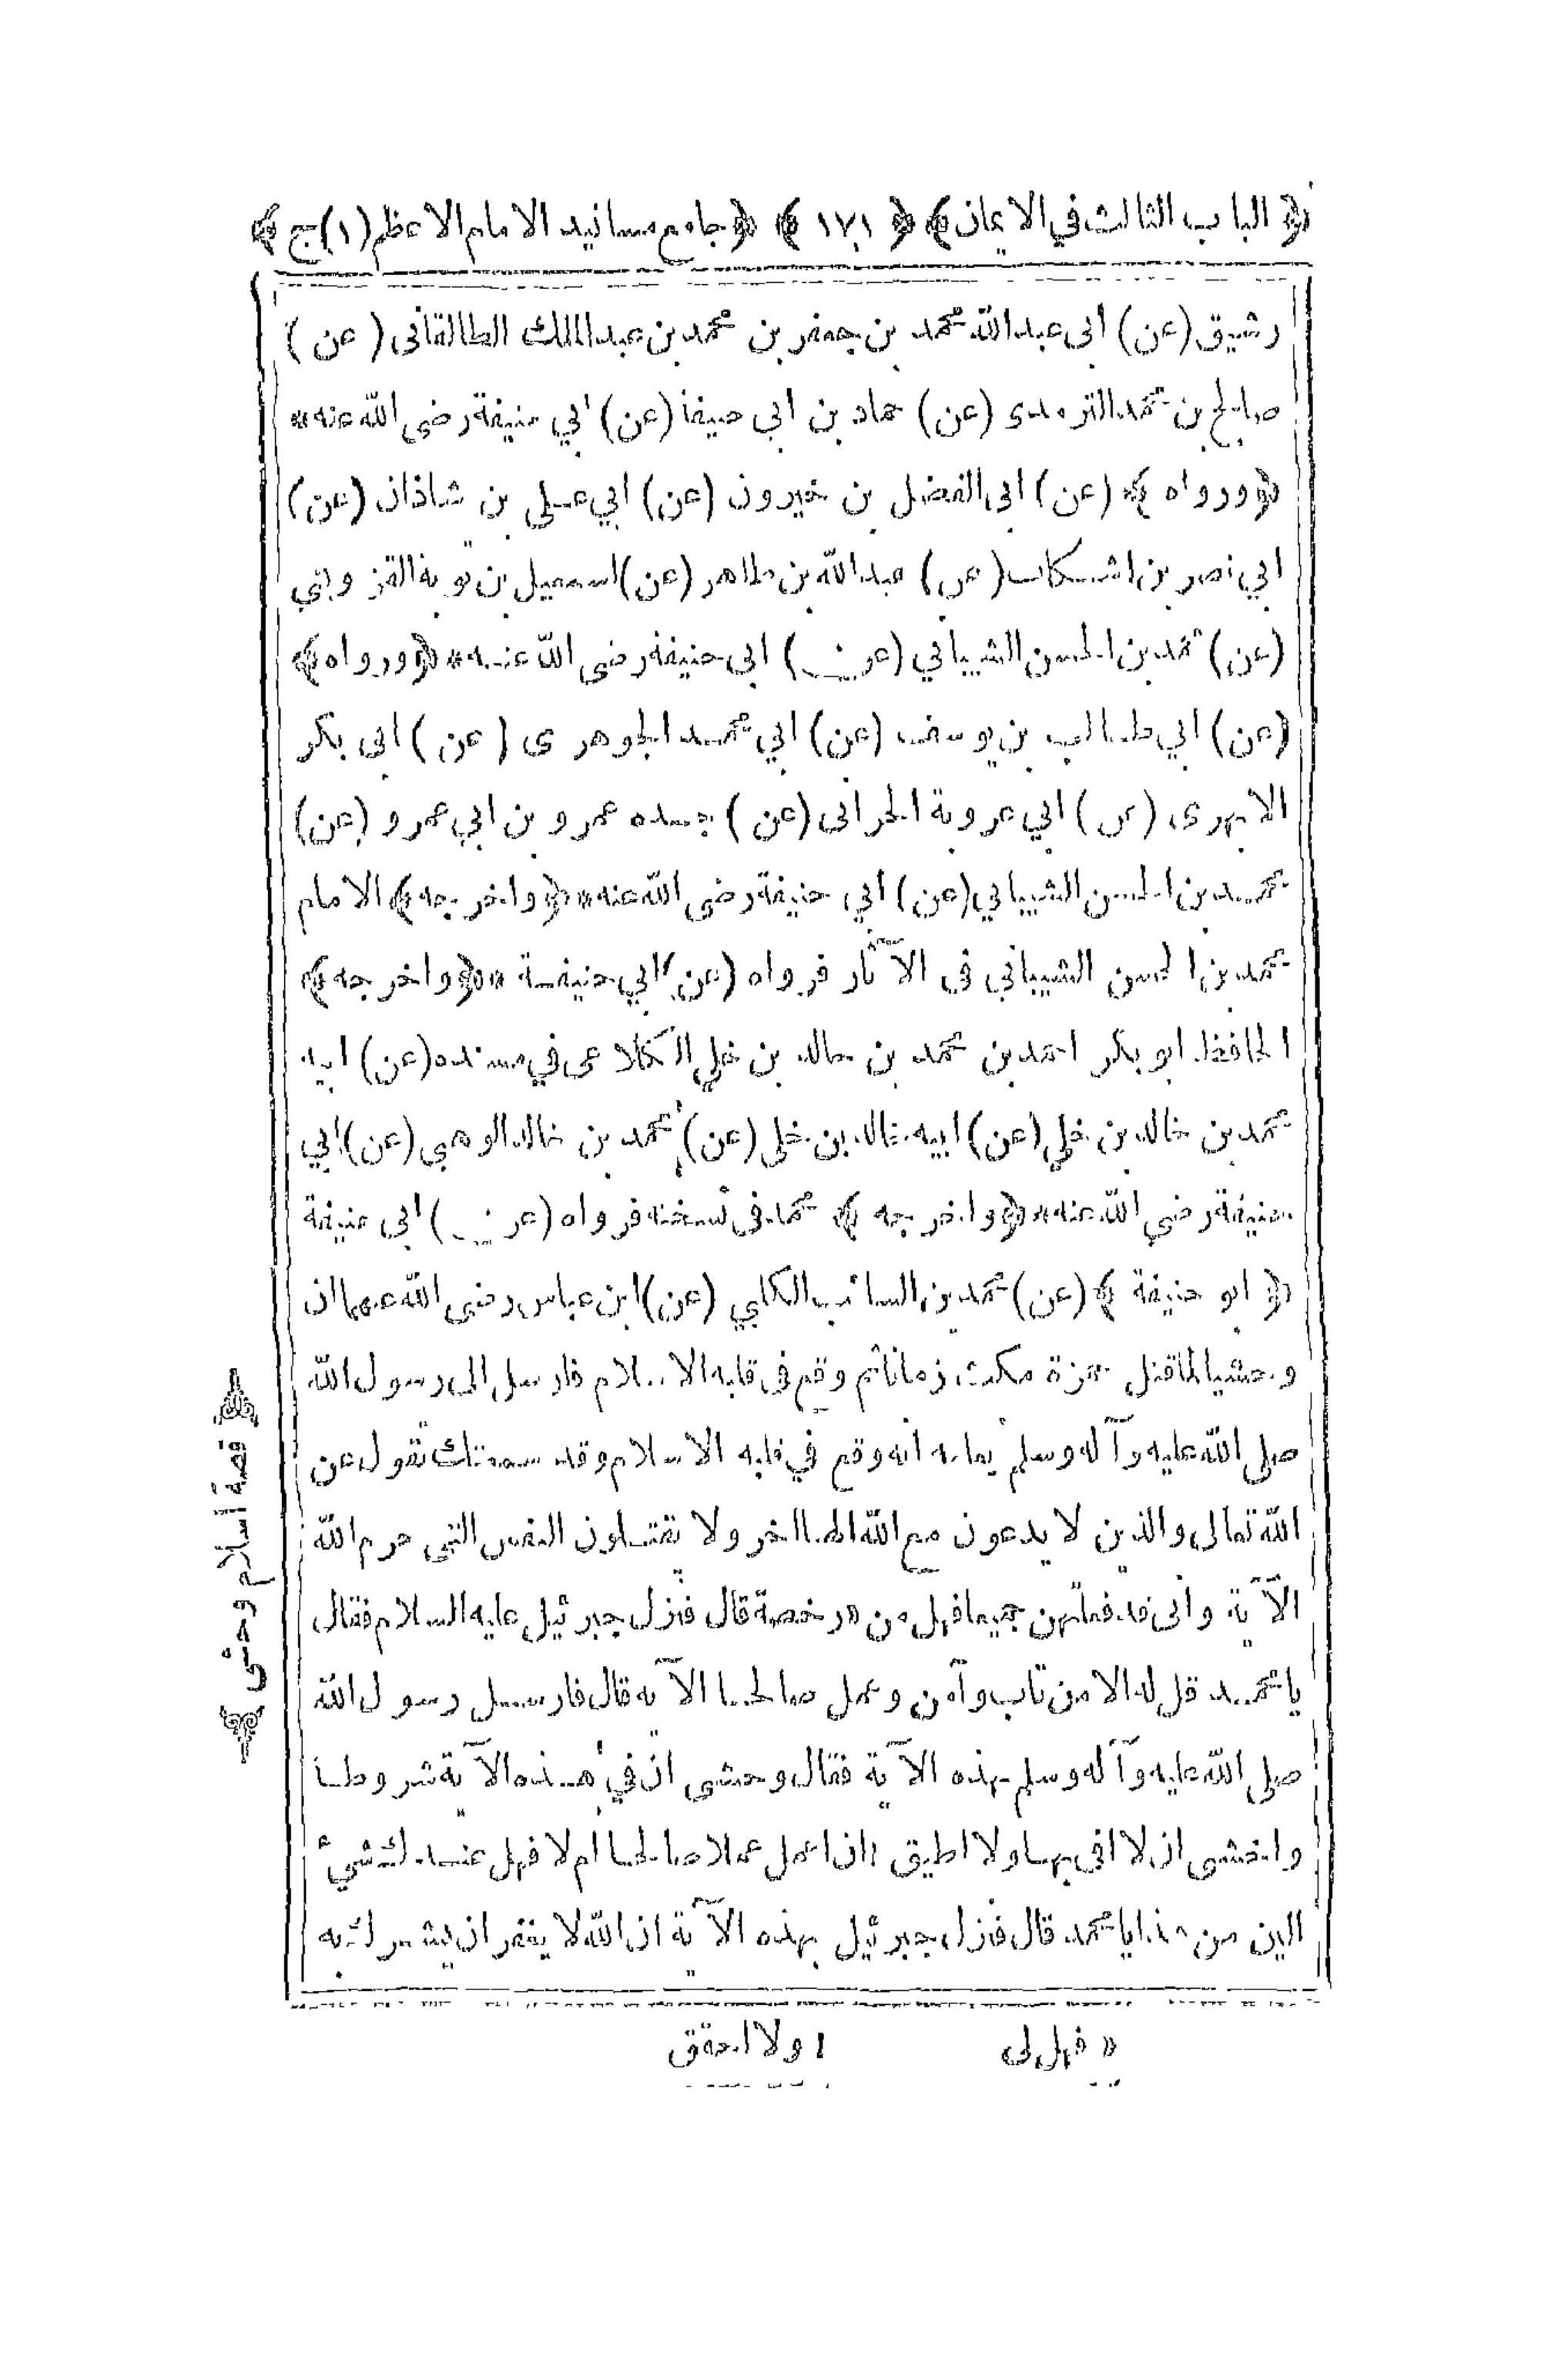 ﴿ الباب الثالث في الايمان ﴾ ﴿ ١٧١ ﴾ ﴿ جامع مسانيد الامام الاعظم (١) ج ﴾
رشيق (عن) ابى عبدالله محمد بن جعفر بن محمد بن عبدالملك الطالقانى (عن)
صالح بن محمد الترمذى (عن) حماد بن ابي حنيفة (عن) ابي حنيفة رضى الله عنه *
﴿ ورواه ﴾ (عن) ابى الفضل بن خيرون (عن) ابي على بن شاذان (عن)
ابي نصر بن اشكاب (عن) عبدالله بن طاهر (عن) اسمعيل بن توبة القزويني
(عن) محمد بن الحسن الشيباني (عن) ابى حنيفة رضى الله عنه * ﴿ ورواه ﴾
(عن) ابي طالب بن يوسف (عن) ابي محمد الجوهرى (عن) ابى بكر
الابهرى (عن) ابي عروبة الحرانى (عن) جده عمرو بن ابي عمرو (عن)
محمد بن الحسن الشيباني (عن) ابي حنيفة رضى الله عنه * ﴿ واخرجه ﴾ الامام
محمد بن الحسن الشيباني فى الآثار فرواه (عن) ابي حنيفة * ﴿ واخرجه ﴾
الحافظ ابو بكر احمد بن محمد بن خالد بن خلي الكلاعى في مسنده (عن) ابيه
محمد بن خالد بن خلي (عن) ابيه خالد بن خلى (عن) محمد بن خالد الوهبي (عن) ابي
حنيفة رضي الله عنه * ﴿ واخرجه ﴾ محمد فى نسخته فرواه (عن) ابى حنيفة
﴿ ابو حنيفة ﴾ (عن) محمد بن السائب الكلبي (عن) ابن عباس رضى الله عنهما ان
وحشيا لما قتل حمزة مكث زمانا ثم وقع فى قلبه الاسلام فارسل الى رسول الله
صلى الله عليه وآله وسلم يعلمه انه وقع في قلبه الاسلام وقد سمعتك تقول عن
الله تعالى والذين لا يدعون مع الله الها آخر ولا يقتلون النفس التى حرم الله
الآية وانى قد فعلتهن جميعا فهل من * رخصة قال فنزل جبرئيل عليه السلام فقال
يا محمد قل له الا من تاب وآمن وعمل صالحا الآية قال فارسل رسول الله
صلى الله عليه وآله وسلم بهذه الآية فقال وحشى ان في هذه الآية شروطا
واخشى ان لا افى بها ولا اطيق ١ ان اعمل عملا صالحا ام لا فهل عندك شيء
الين من هذا يا محمد قال فنزل جبرئيل بهذه الآية ان الله لا يغفر ان يشرك به
* فهل لى
١ ولا احقق
﴿ قصة اسلام وحشى ﴾